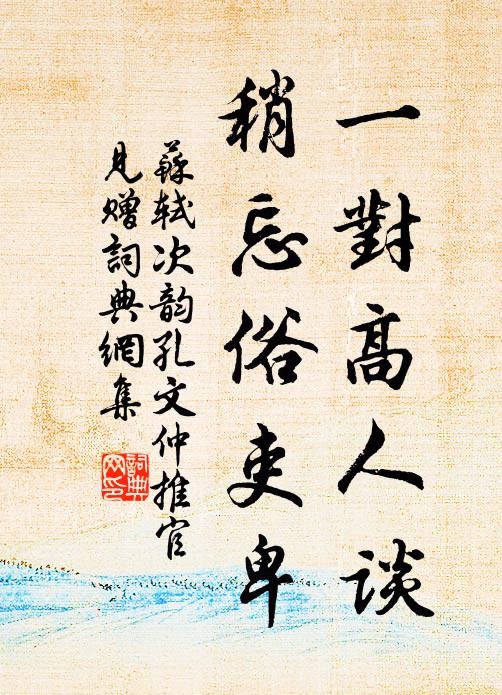 一對高人談
稍忘俗吏卑
蘇軾次韵孔文仲推官
見贈詞典網集
詞典網印